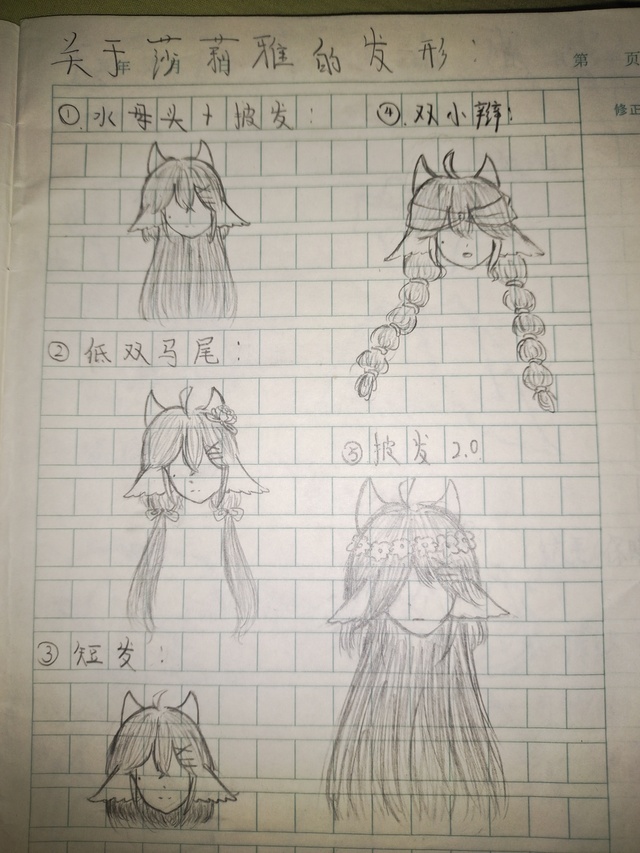 关于莎莉雅的发形：
年 月 日 第 页
修正
①水母头+披发：
④双小辫：
②低双马尾：
⑤披发2.0
③短发：